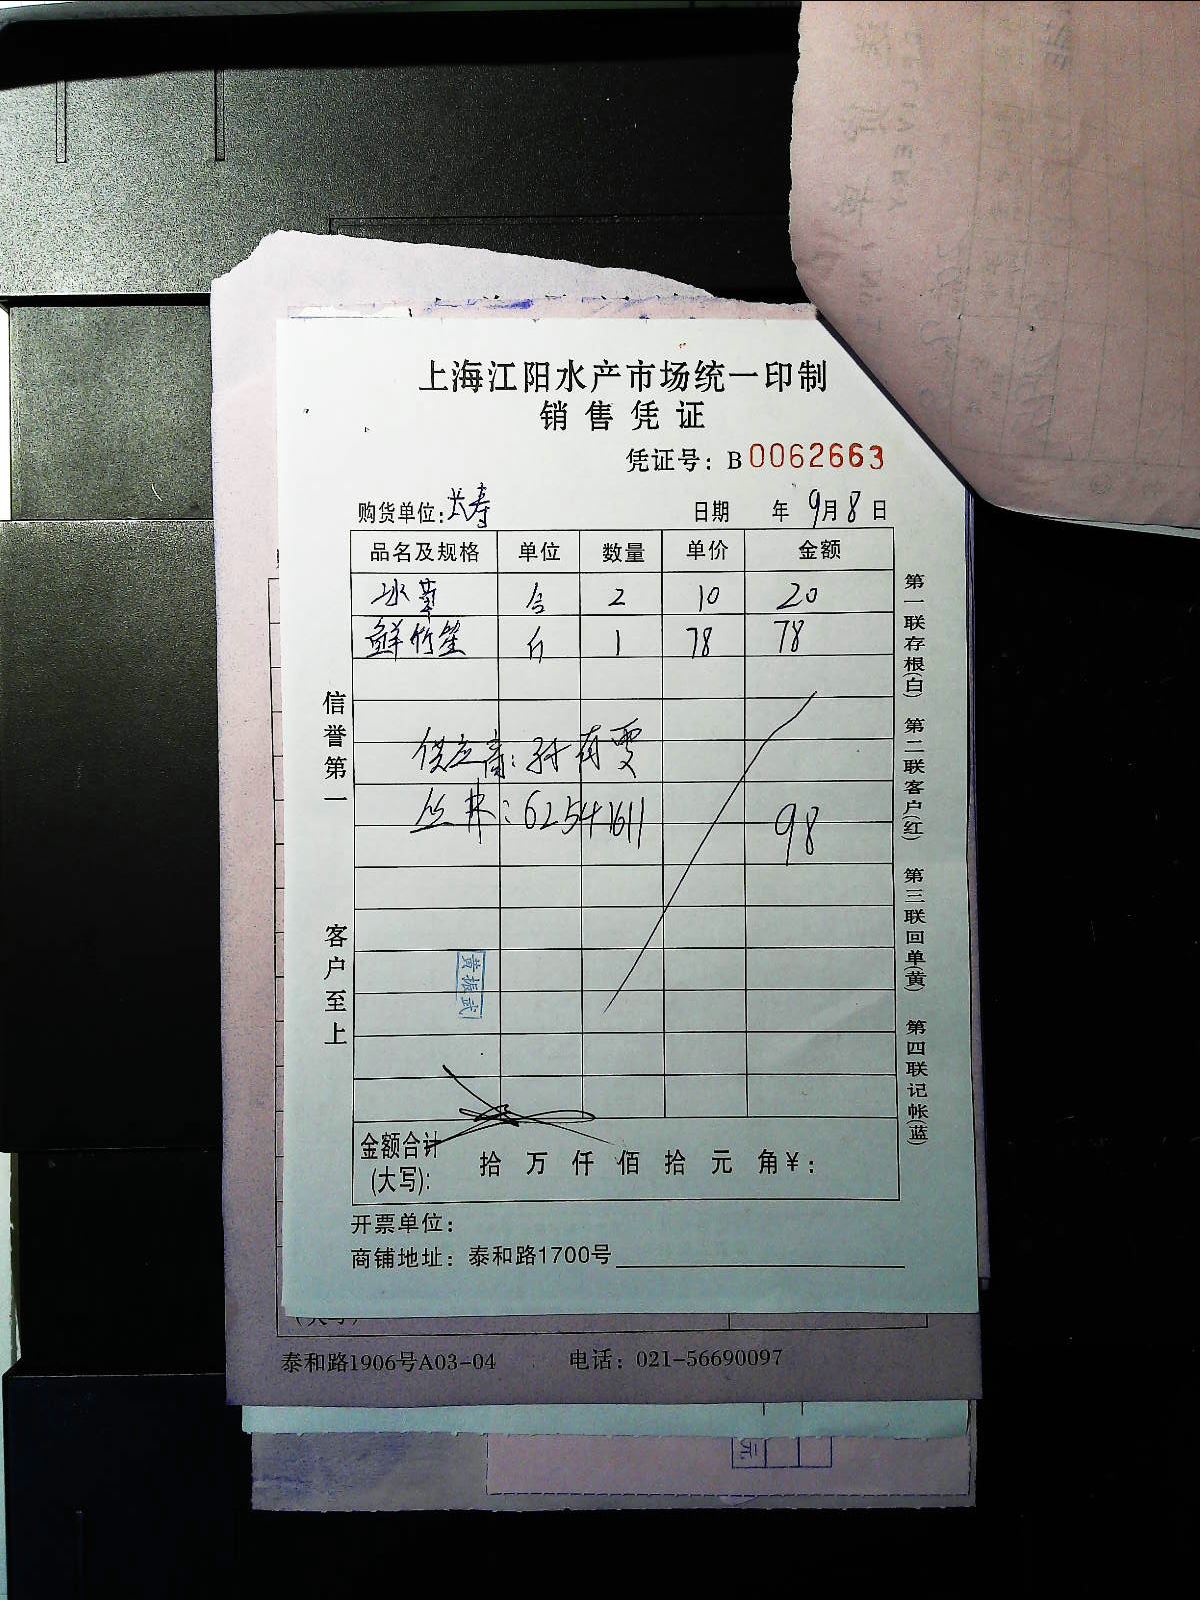 上海江阳水产市场统一印制
销售凭证
凭证号：B 0062663
购货单位：长寿 日期 年 9月8日
品名及规格 单位 数量 单价 金额
冰草 合 2 10 20
鲜竹笙 斤 1 78 78
供应商：孙有雯
丝林：62541611
98
黄振武
金额合计(大写)： 拾 万 仟 佰 拾 元 角 ¥：
开票单位：
商铺地址：泰和路1700号
信誉第一
客户至上
第一联存根(白) 第二联客户(红) 第三联回单(黄) 第四联记帐(蓝)
泰和路1906号A03-04 电话：021-56690097
元